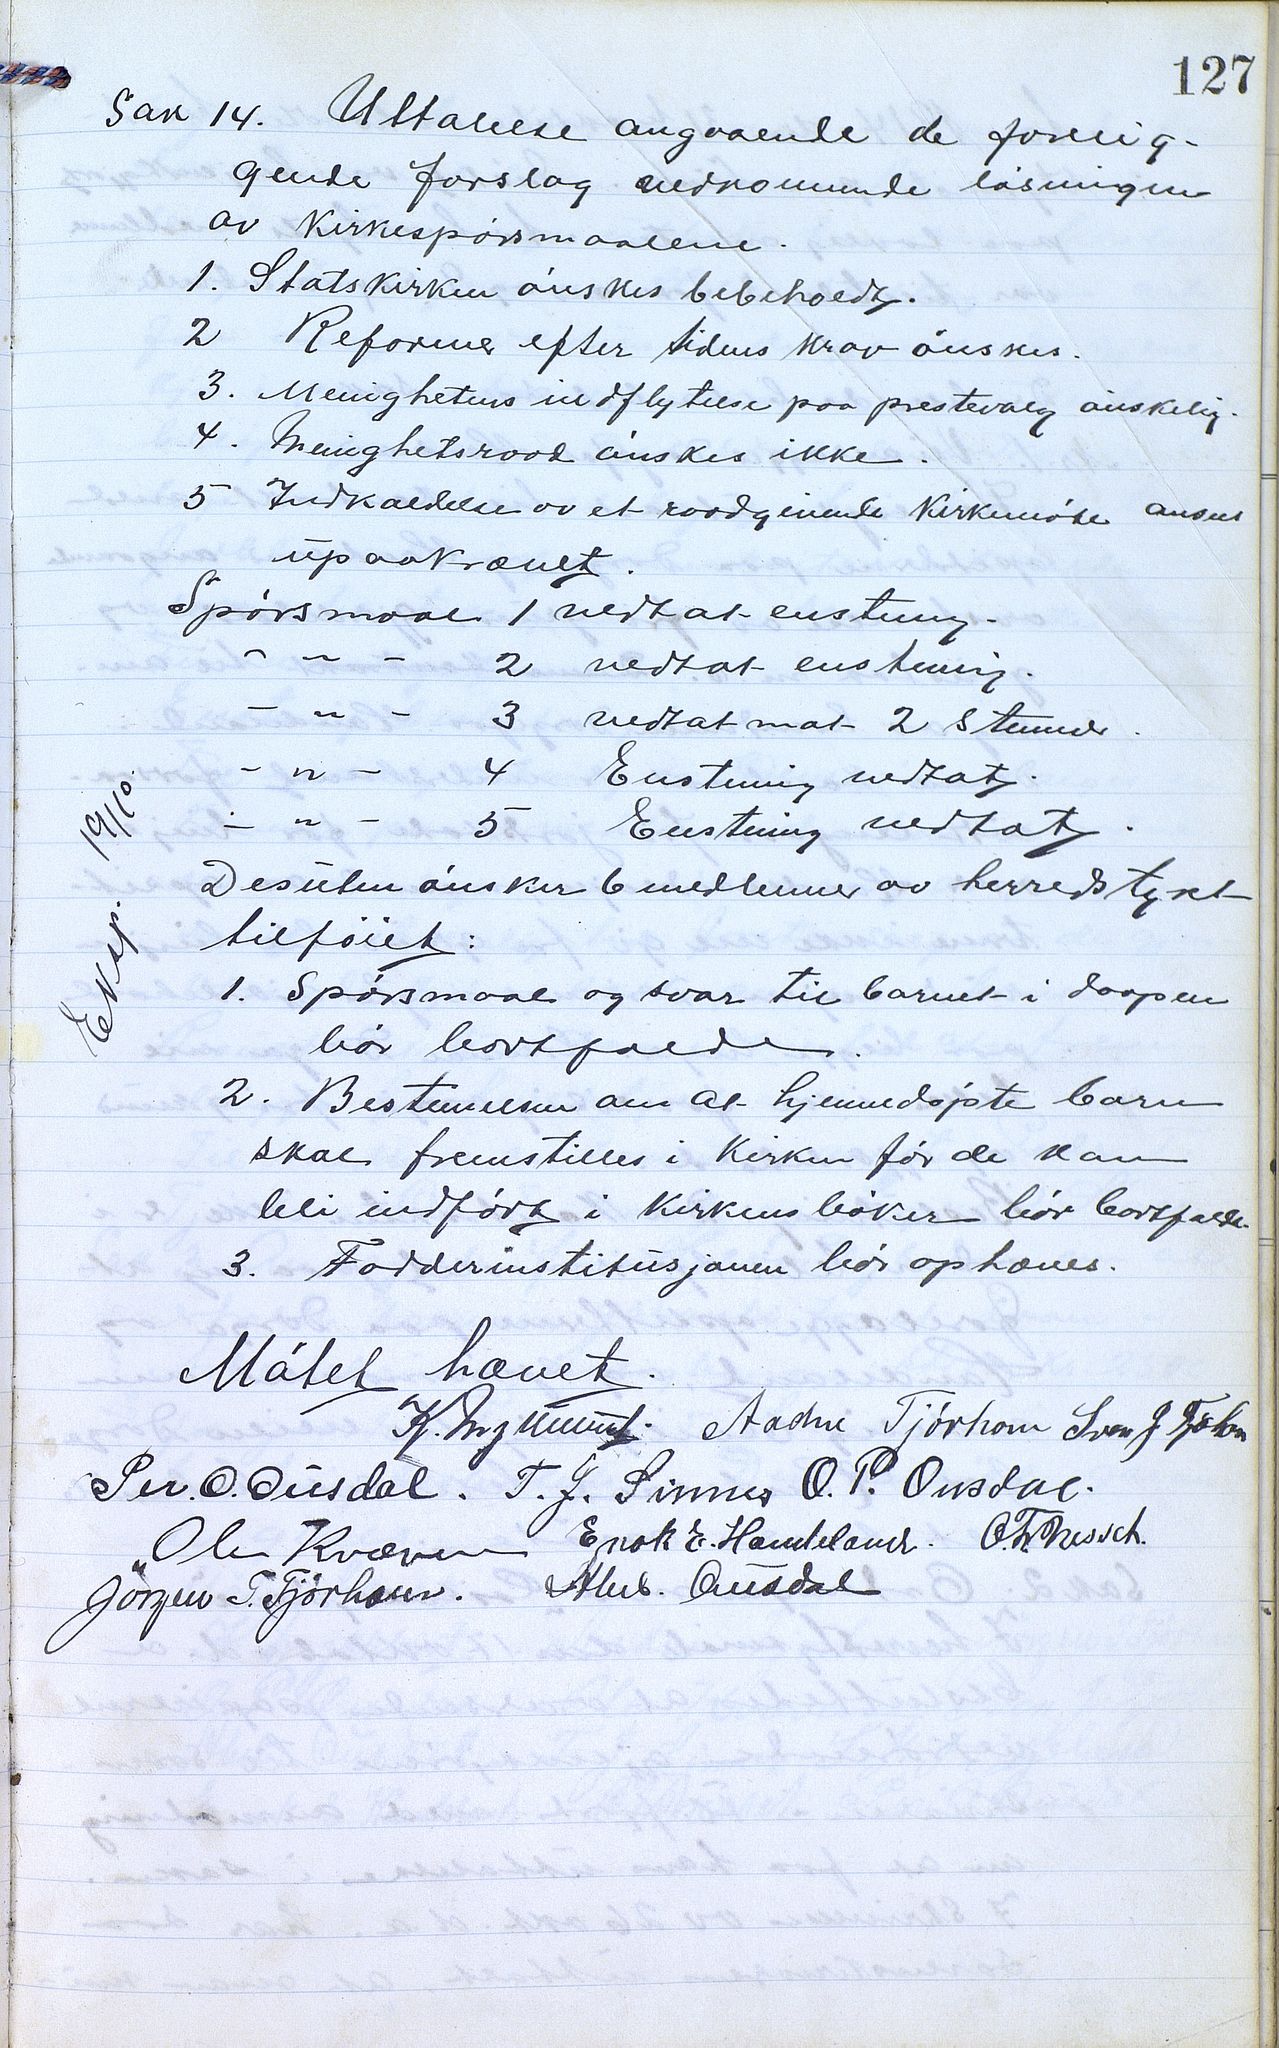 127
Sak 14. Uttalelse angaaende de forelig-
gende forslag vedkommende løsningen
av kirkespørsmaalene.
1. Statskirken ønskes bebeholdt.
2 Reformer efter tidens krav ønskes.
3. Menighetens indflytelse paa prestevalg ønskelig.
4. Menighetsraad ønskes ikke.
5 Indkaldelse av et raadgivende kirkemøte ansees
upaakrævet.
Spørsmaal 1 vedtat enstemig.
- " - 2 vedtat enstemig.
- " - 3 vedtat mot 2 stemmer.
- " - 4 Enstemig vedtat.
- " - 5 Enstemig vedtat.
Eksp. 19/10.
Desuten ønsker 6 medlemmer av herredstyret
tilføiet:
1. Spørsmaal og svar til barnet i daapen
bør bortfalde.
2. Bestemmelsen om at hjemmedøpte barn
skal fremstilles i kirken før de kan
bli indført i kirkens bøker bør bortfalde.
3. Fadderinstitusjonen bør ophæves.
Møtet hævet.
Aadne Tjørhom Sven J
Per. O. Ousdal. T. J. Sinnes O. P. Ousdal.
Ole Kvæven Enok E. Handeland. O. Tr.
Jørgen T. Tjørhom. Alb. Ousdal